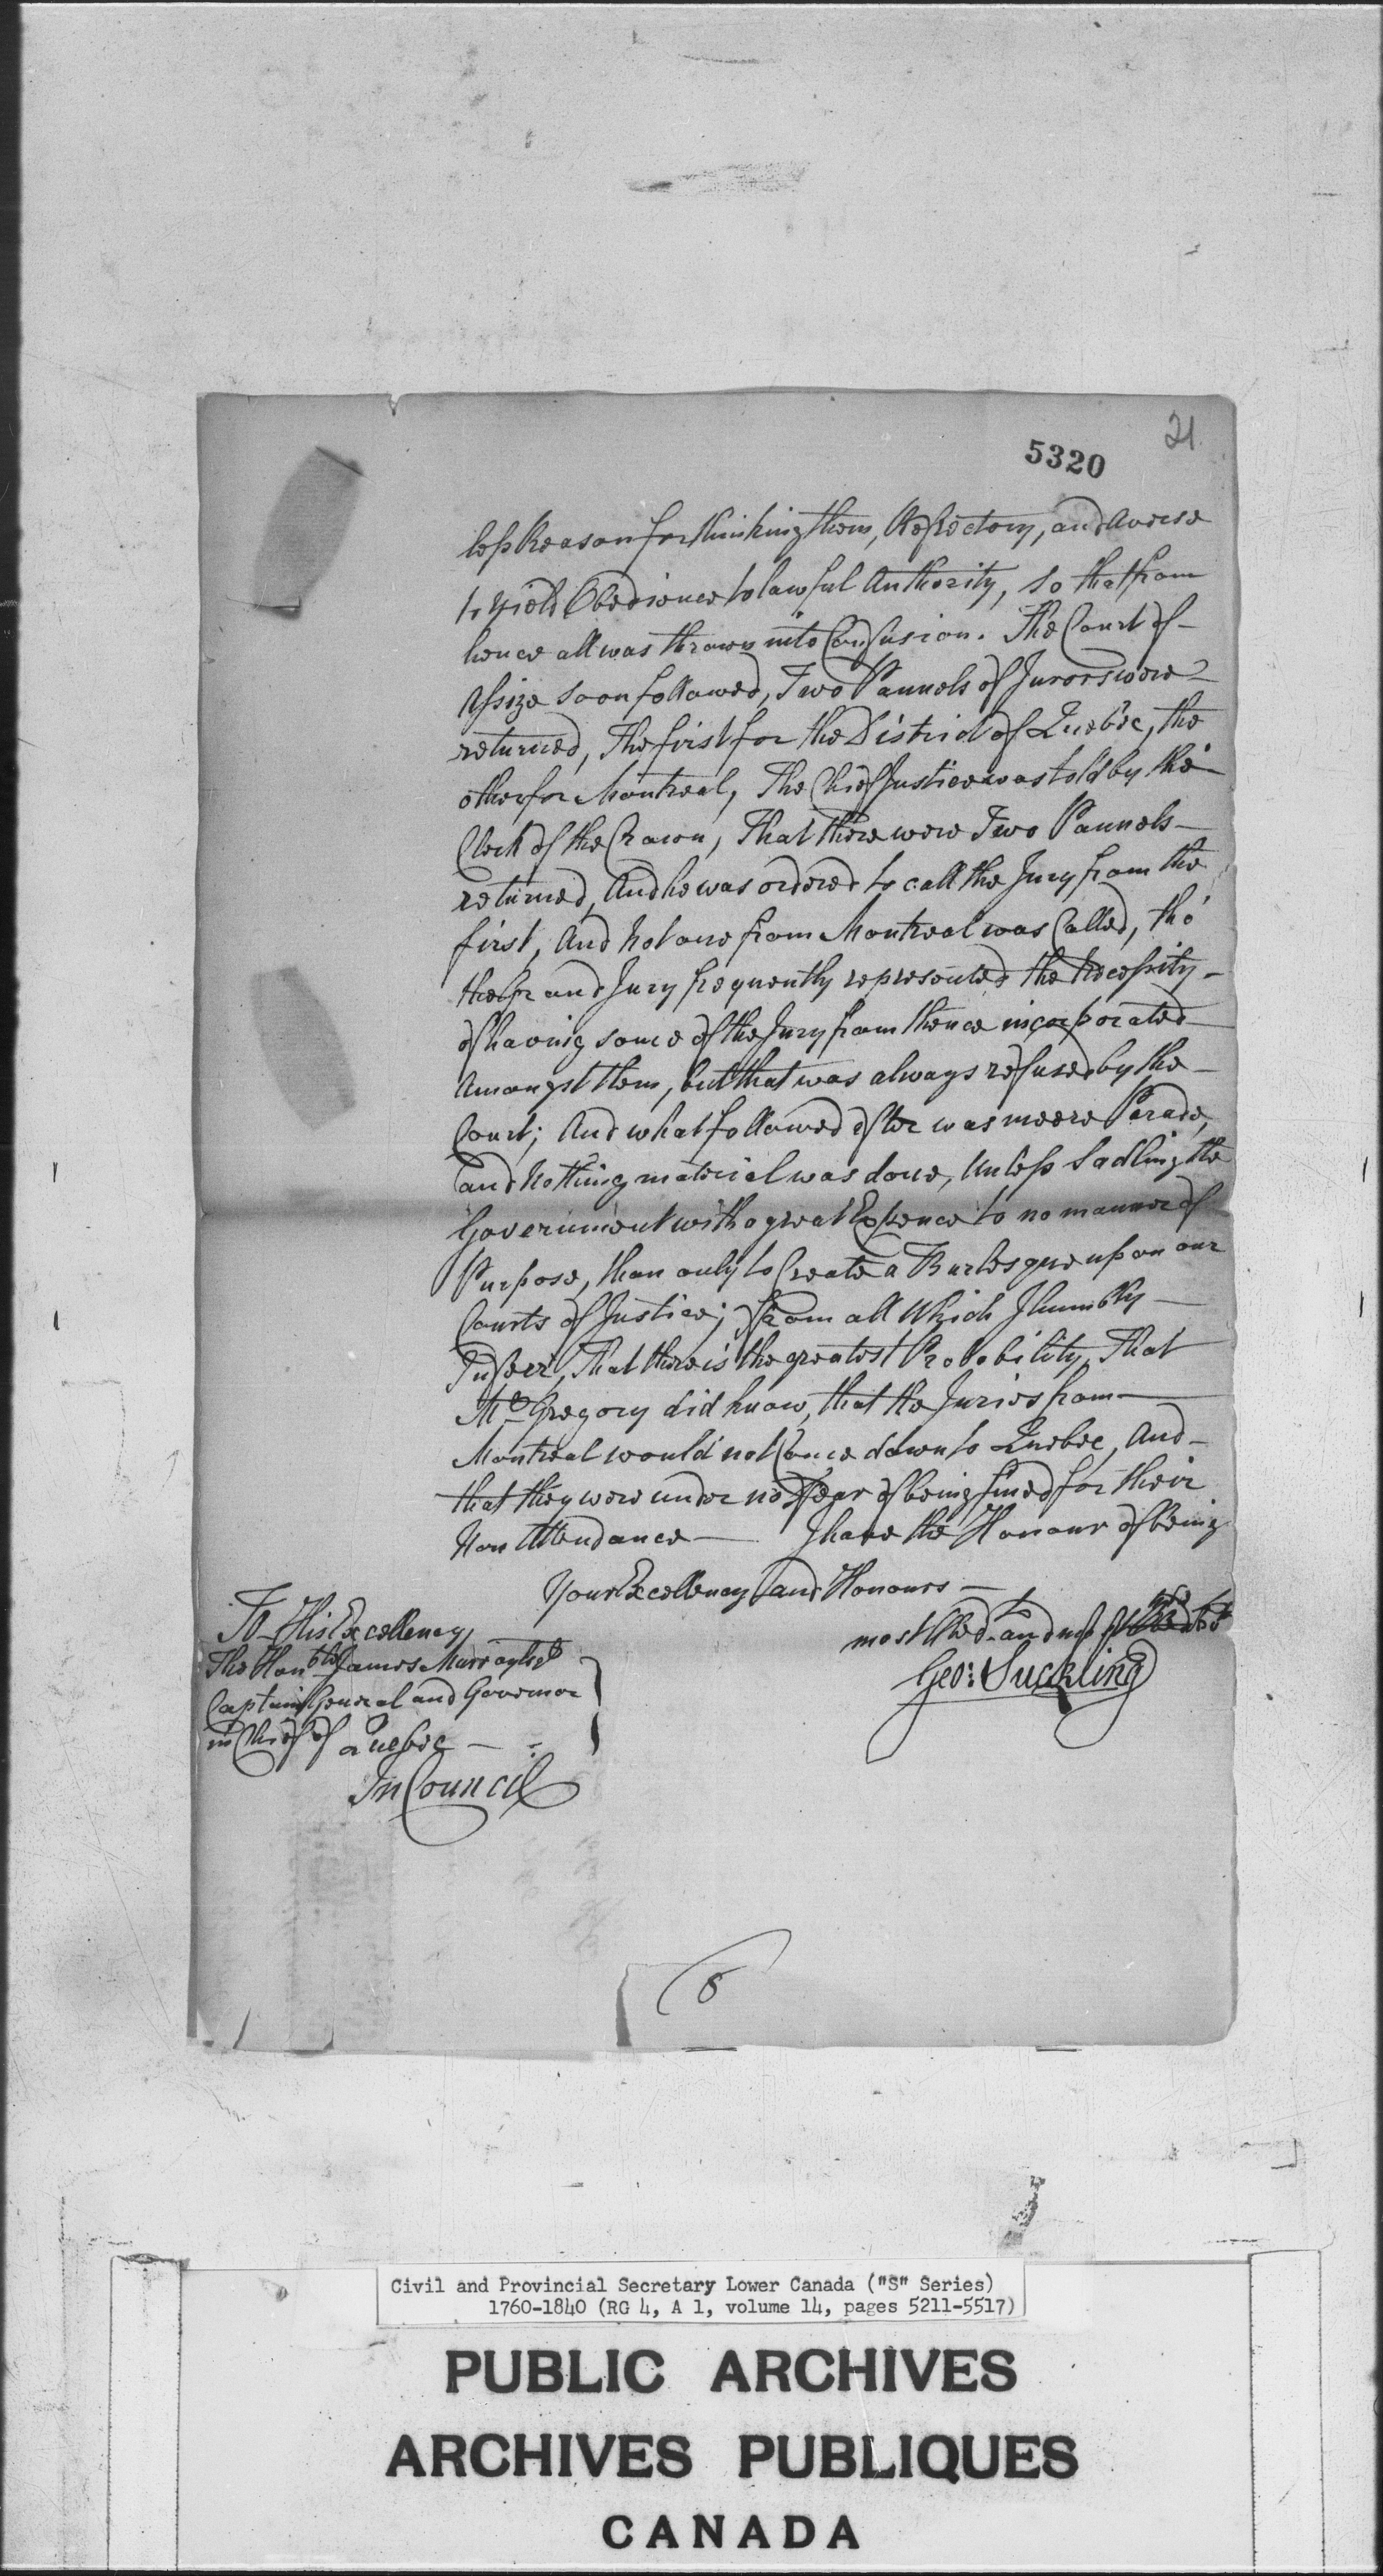 21
5320
less Reason for thinking them, Refrectory, and Averse
to yield Obedience to lawful Authority, so that from
hence all was thrown into Confusion. The Court of
Assize soon followed, Two Pannels of Jurors were
returned, The first for the District of Quebec, the
other for Montreal, The Chief Justice was told by the
Clerk of the Crown, That there were Two Pannels
returned, And he was ordered to call the Jury from the
first, And not one from Montreal was Called, tho'
the Grand Jury frequently represented the Necessity
of having some of the Jury from thence incorporated
Amongst them, but that was always refused by the
Court; And what followed after was meere Parade,
and Nothing material was done, Unless Sadling the
Government with a great Expence to no manner of
Purpose, than only to Create a Burlesque upon our
Courts of Justice; from all Which I humbly
Inferr, That there is the greatest Probability, That
Mr Gregory did know, that the Juries from
Montreal would not Come down to Quebec, And
that they were under no Fear of being fined for their
Non Attendance — I have the Honour of being
Your Excellency and Honours —
most Obed. and most
Geo: Suckling
To His Excellency
The Honble James Murray Esqr
Captain General and Governor
in Chief of Quebec —
In Council
8
Civil and Provincial Secretary Lower Canada ("S" Series)
1760-1840 (RG 4, A 1, volume 14, pages 5211-5517)
PUBLIC ARCHIVES
ARCHIVES PUBLIQUES
CANADA